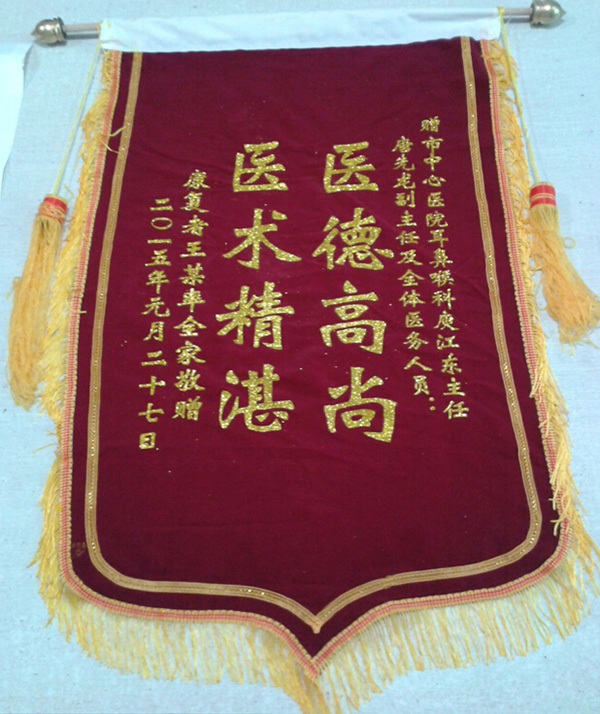 赠市中心医院耳鼻喉科庾江东主任
唐先龙副主任及全体医务人员：
医德高尚
医术精湛
康复者王某率全家敬赠
二〇一五年元月二十七日